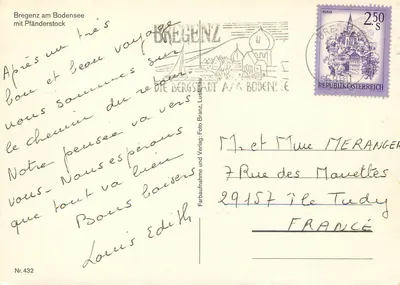 Bregenz am Bodensee
mit Pfänderstock
Après un très
bon et beau voyage
nous sommes sur
le chemin du retour.
Notre pensée va vers
vous. Nous espérons
que tout va bien
Bons baisers
Louis Edith
Nr. 432
Farbaufnahme und Verlag: Foto Branz, Lustenau
BREGENZ
DIE BERGSTADT AM BODENSEE
2.50
S
REPUBLIK ÖSTERREICH
M. et Mme MERANGER
7 Rue des Mouettes
29157 île Tudy
FRANCE